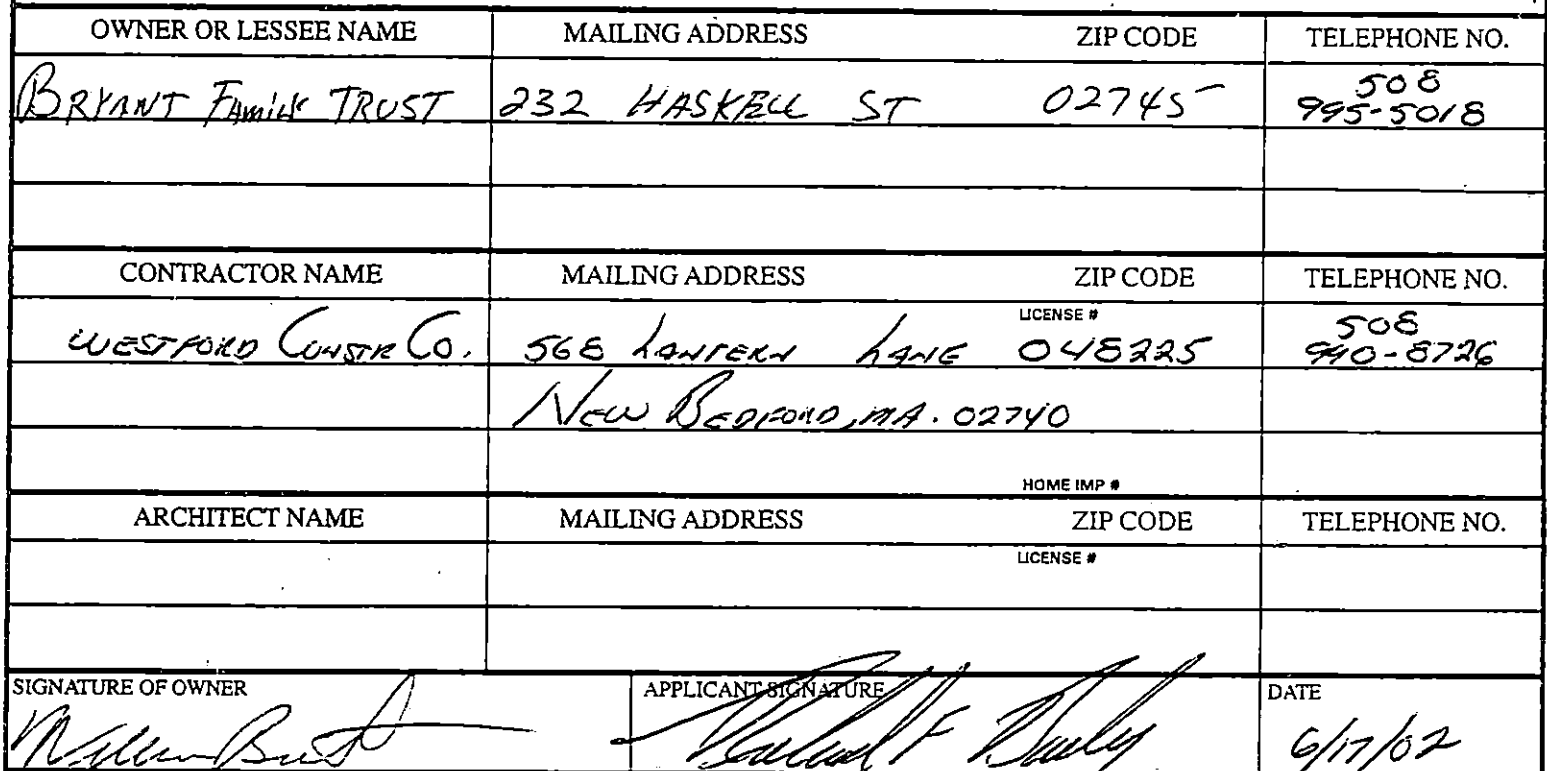 OWNER OR LESSEE NAME MAILING ADDRESS ZIP CODE TELEPHONE NO.
BRYANT FAMILY TRUST 232 HASKELL ST 02745 508 995-5018
CONTRACTOR NAME MAILING ADDRESS ZIP CODE TELEPHONE NO.
LICENSE #
WESTFORD CONSTR CO. 568 LANTERN LANE 048225 508 990-8726
NEW BEDFORD, MA. 02740
HOME IMP #
ARCHITECT NAME MAILING ADDRESS ZIP CODE TELEPHONE NO.
LICENSE #
SIGNATURE OF OWNER APPLICANT SIGNATURE DATE
6/17/02